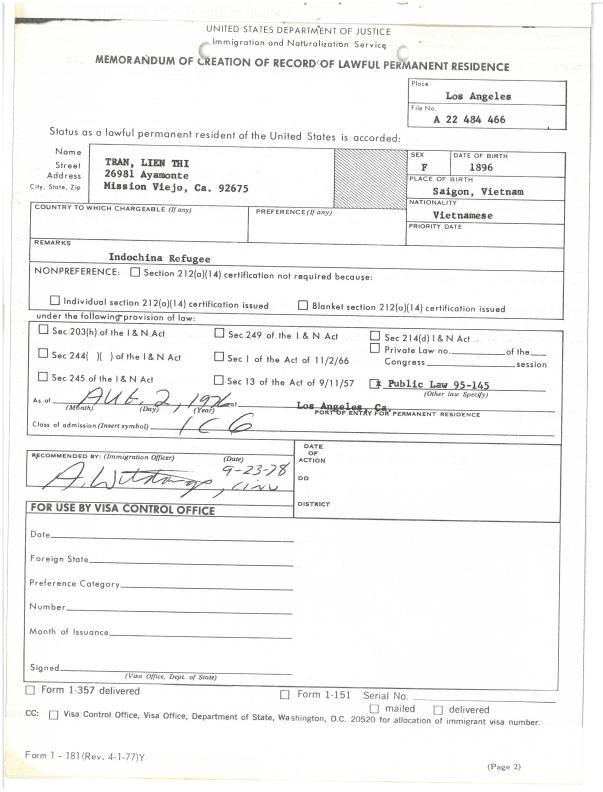 UNITED STATES DEPARTMENT OF JUSTICE
Immigration and Naturalization Service
MEMORANDUM OF CREATION OF RECORD OF LAWFUL PERMANENT RESIDENCE
Place
Los Angeles
File No.
A 22 484 466
Status as a lawful permanent resident of the United States is accorded:
Name
Street
Address
City, State, Zip
TRAN, LIEN THI
26981 Ayamonte
Mission Viejo, Ca. 92675
SEX
F
DATE OF BIRTH
1896
PLACE OF BIRTH
Saigon, Vietnam
NATIONALITY
Vietnamese
PRIORITY DATE
COUNTRY TO WHICH CHARGEABLE (If any)
PREFERENCE (If any)
REMARKS
Indochina Refugee
NONPREFERENCE: Section 212(a)(14) certification not required because:
Individual section 212(a)(14) certification issued Blanket section 212(a)(14) certification issued
under the following provision of law:
Sec 203(h) of the I & N Act Sec 249 of the I & N Act Sec 214(d) I & N Act
Private Law no. of the
Sec 244( )( ) of the I & N Act Sec 1 of the Act of 11/2/66 Congress session
Sec 245 of the I & N Act Sec 13 of the Act of 9/11/57 x Public Law 95-145
(Other law Specify)
As of AUG. 2, 1976 at Los Angeles, Ca.
(Month) (Day) (Year) PORT OF ENTRY FOR PERMANENT RESIDENCE
Class of admission (Insert symbol) IC6
RECOMMENDED BY: (Immigration Officer) (Date)
9-23-78
DATE
OF
ACTION
DD
DISTRICT
FOR USE BY VISA CONTROL OFFICE
Date
Foreign State
Preference Category
Number
Month of Issuance
Signed
(Visa Office, Dept. of State)
Form 1-357 delivered Form 1-151 Serial No.
mailed delivered
CC: Visa Control Office, Visa Office, Department of State, Washington, D.C. 20520 for allocation of immigrant visa number.
Form 1 - 181 (Rev. 4-1-77)Y
(Page 2)